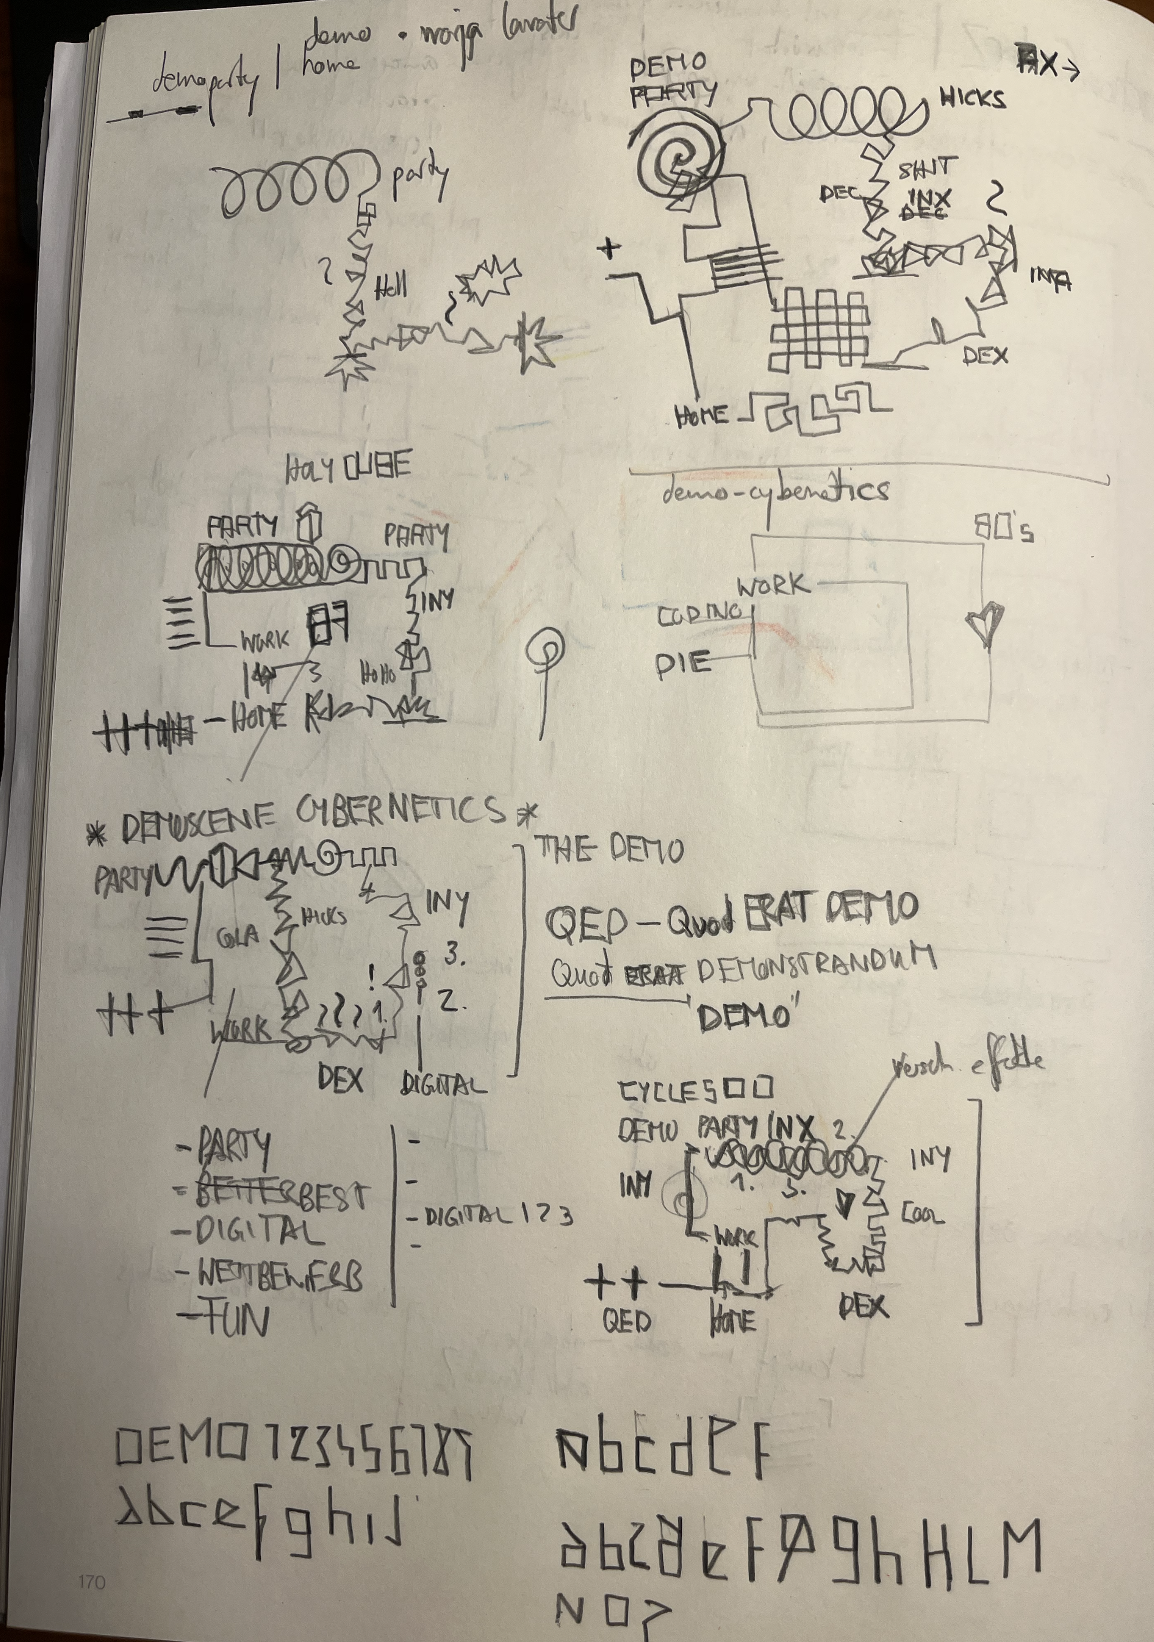 demo • warja lavater
demoparty | home
party
Hell
DEMO
PARTY
HICKS
AX→
SHIT
DEC
INX
DEC
INA
DEX
+
HOME
HOLY CUBE
PARTY
PARTY
INY
WORK
HOHO
HOME
demo-cybernetics
80's
WORK
CODING
DIE
* DEMOSCENE CYBERNETICS *
PARTY
INY
COLA
HICKS
3.
!
2.
1.
WORK
DEX
DIGITAL
THE DEMO
QED – Quod ERAT DEMO
Quod ERAT DEMONSTRANDUM
"DEMO"
- PARTY
- BETTER BEST
- DIGITAL
- WETTBEWERB
- FUN
-
-
- DIGITAL 1 2 3
-
versch. effekte
CYCLES
DEMO PARTY INX 2.
INY
1.
3.
INY
COOL
WORK
++
QED
HOME
DEX
DEMO 123456789
abcefghij
abcdef
abcdefghHLM
NO?
170